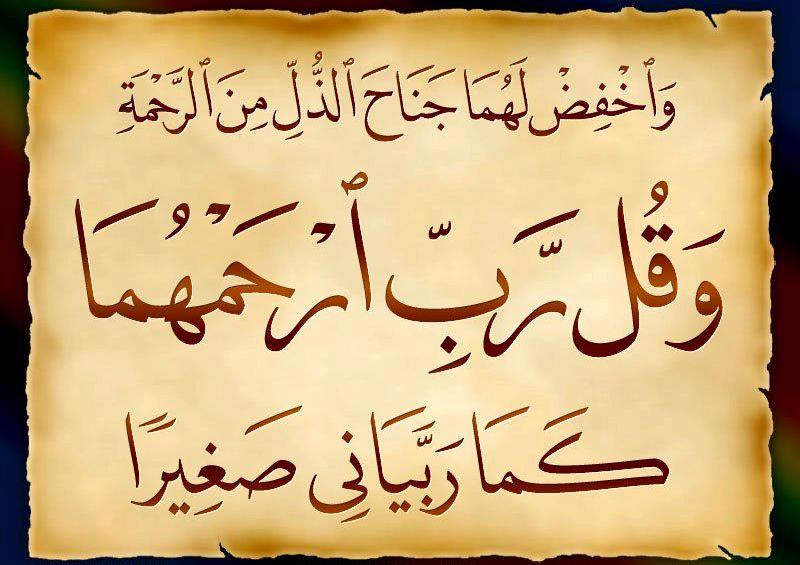 وَٱخْفِضْ لَهُمَا جَنَاحَ ٱلذُّلِّ مِنَ ٱلرَّحْمَةِ
وَقُل رَّبِّ ٱرْحَمْهُمَا
كَمَا رَبَّيَانِي صَغِيرًا